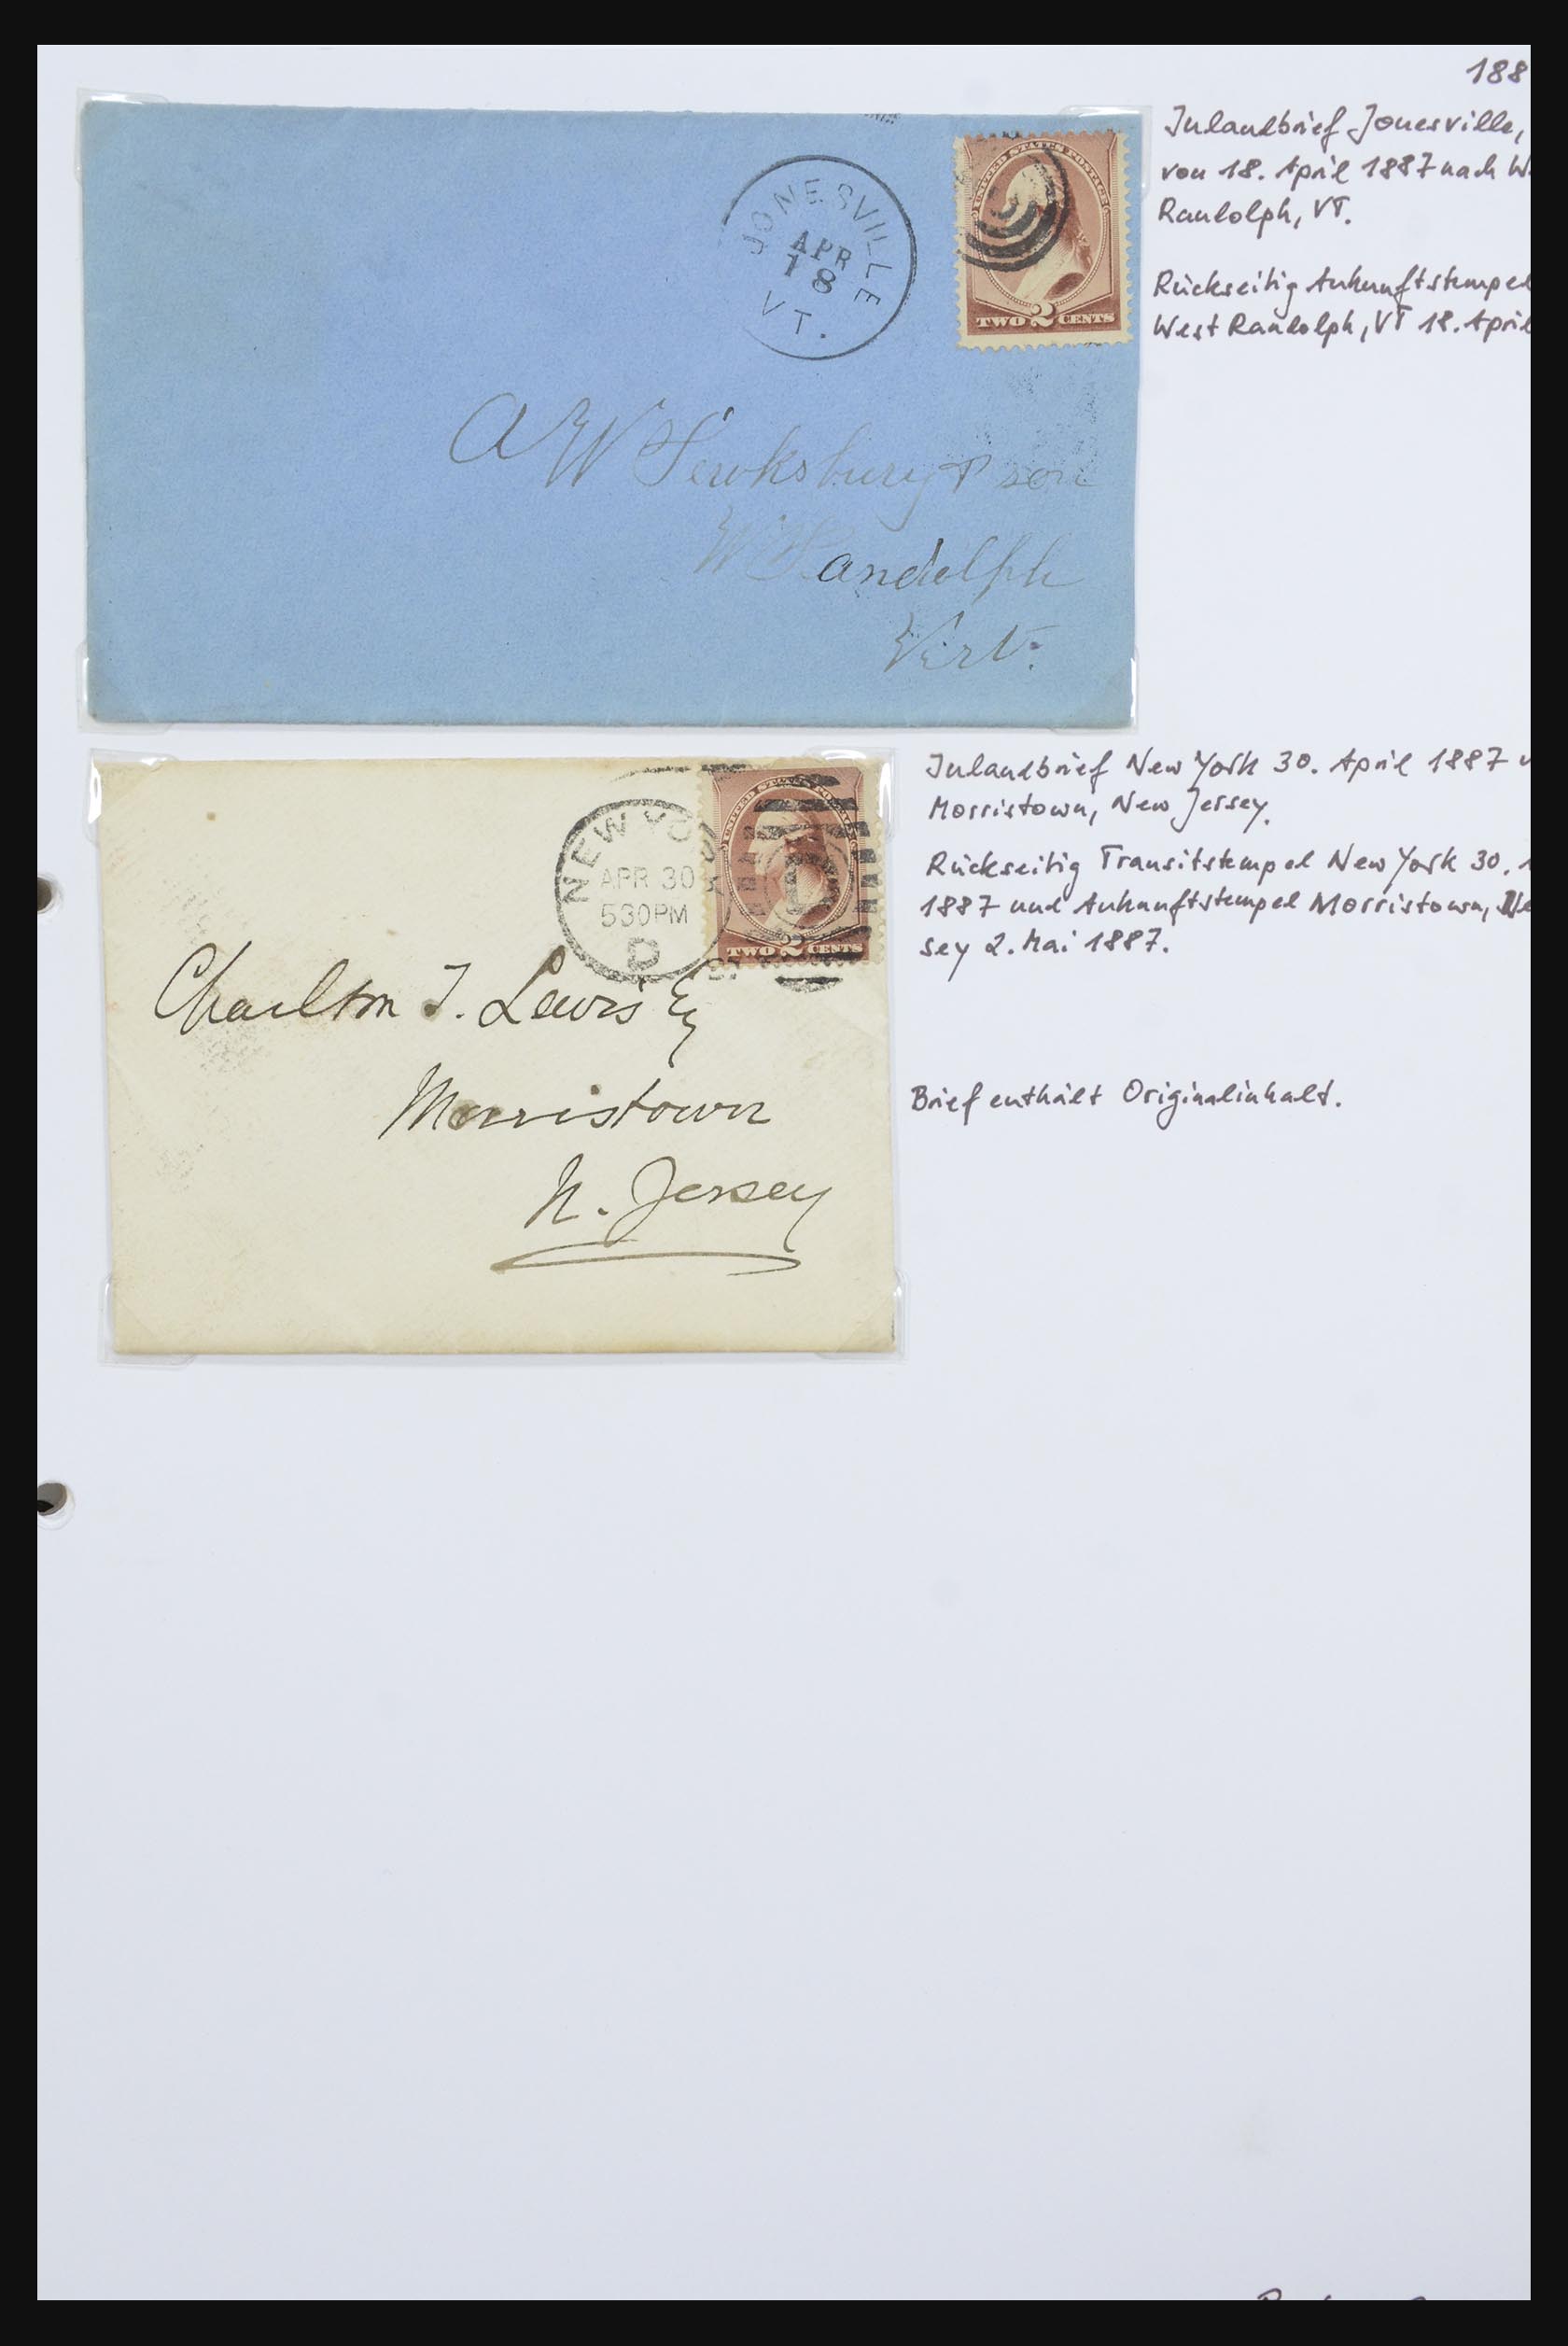 188
Inlandbrief Jonesville,
von 18. April 1887 nach W.
Randolph, VT.
Rückseitig Ankunftstempel
West Randolph, VT 18. April
JONESVILLE
APR
18
VT.
UNITED STATES POSTAGE
TWO 2 CENTS
A W Tewksbury & son
W Randolph
Vert.
Inlandbrief New York 30. April 1887
Morristown, New Jersey.
Rückseitig Transitstempel New York 30.
1887 und Ankunftstempel Morristown, Ne
sey 2. Mai 1887.
NEW YORK
APR 30
530PM
D
87
UNITED STATES PO
TWO 2 CENTS
Charlton T. Lewis Esq
Morristown
N. Jersey
Brief enthält Originalinhalt.